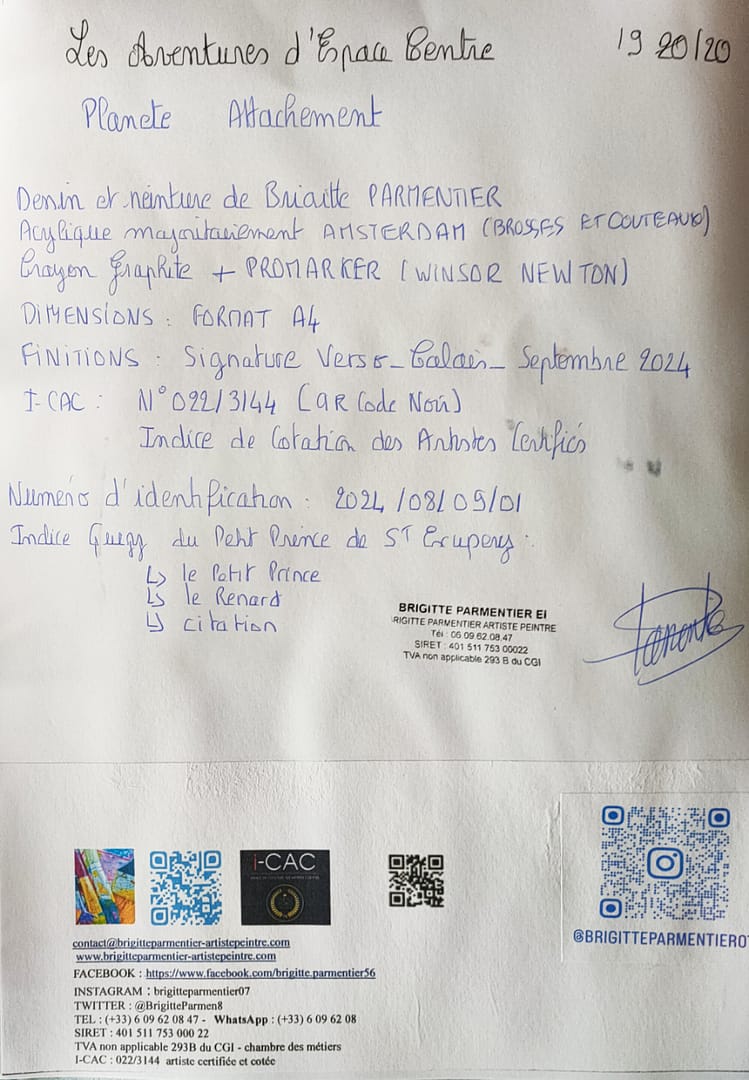 Les Aventures d'Espace Centre 19 20/20
Planete Attachement
Dessin et peinture de Brigitte PARMENTIER
Acylique majoritairement AMSTERDAM (BROSSES ET COUTEAUX)
Crayon Graphite + PROMARKER (WINSOR NEWTON)
DIMENSIONS : FORMAT A4
FINITIONS : Signature Verso - Calais - Septembre 2024
I-CAC : N° 022/3144 (QR Code Noir)
Indice de Cotation des Artistes Certifiés
Numéro d'identification : 2024/08/09/01
Indice du Petit Prince de ST Exupery :
↳ le Petit Prince
↳ le Renard
↳ citation
BRIGITTE PARMENTIER EI
RIGITTE PARMENTIER ARTISTE PEINTRE
Tél : 06 09 62 08 47
SIRET : 401 511 753 00022
TVA non applicable 293 B du CGI
Parmentier
i-CAC
@BRIGITTEPARMENTIER0
contact@brigitteparmentier-artistepeintre.com
www.brigitteparmentier-artistepeintre.com
FACEBOOK : https://www.facebook.com/brigitte.parmentier56
INSTAGRAM : brigitteparmentier07
TWITTER : @BrigitteParmen8
TEL : (+33) 6 09 62 08 47 - WhatsApp : (+33) 6 09 62 08
SIRET : 401 511 753 000 22
TVA non applicable 293B du CGI - chambre des métiers
I-CAC : 022/3144 artiste certifiée et cotée